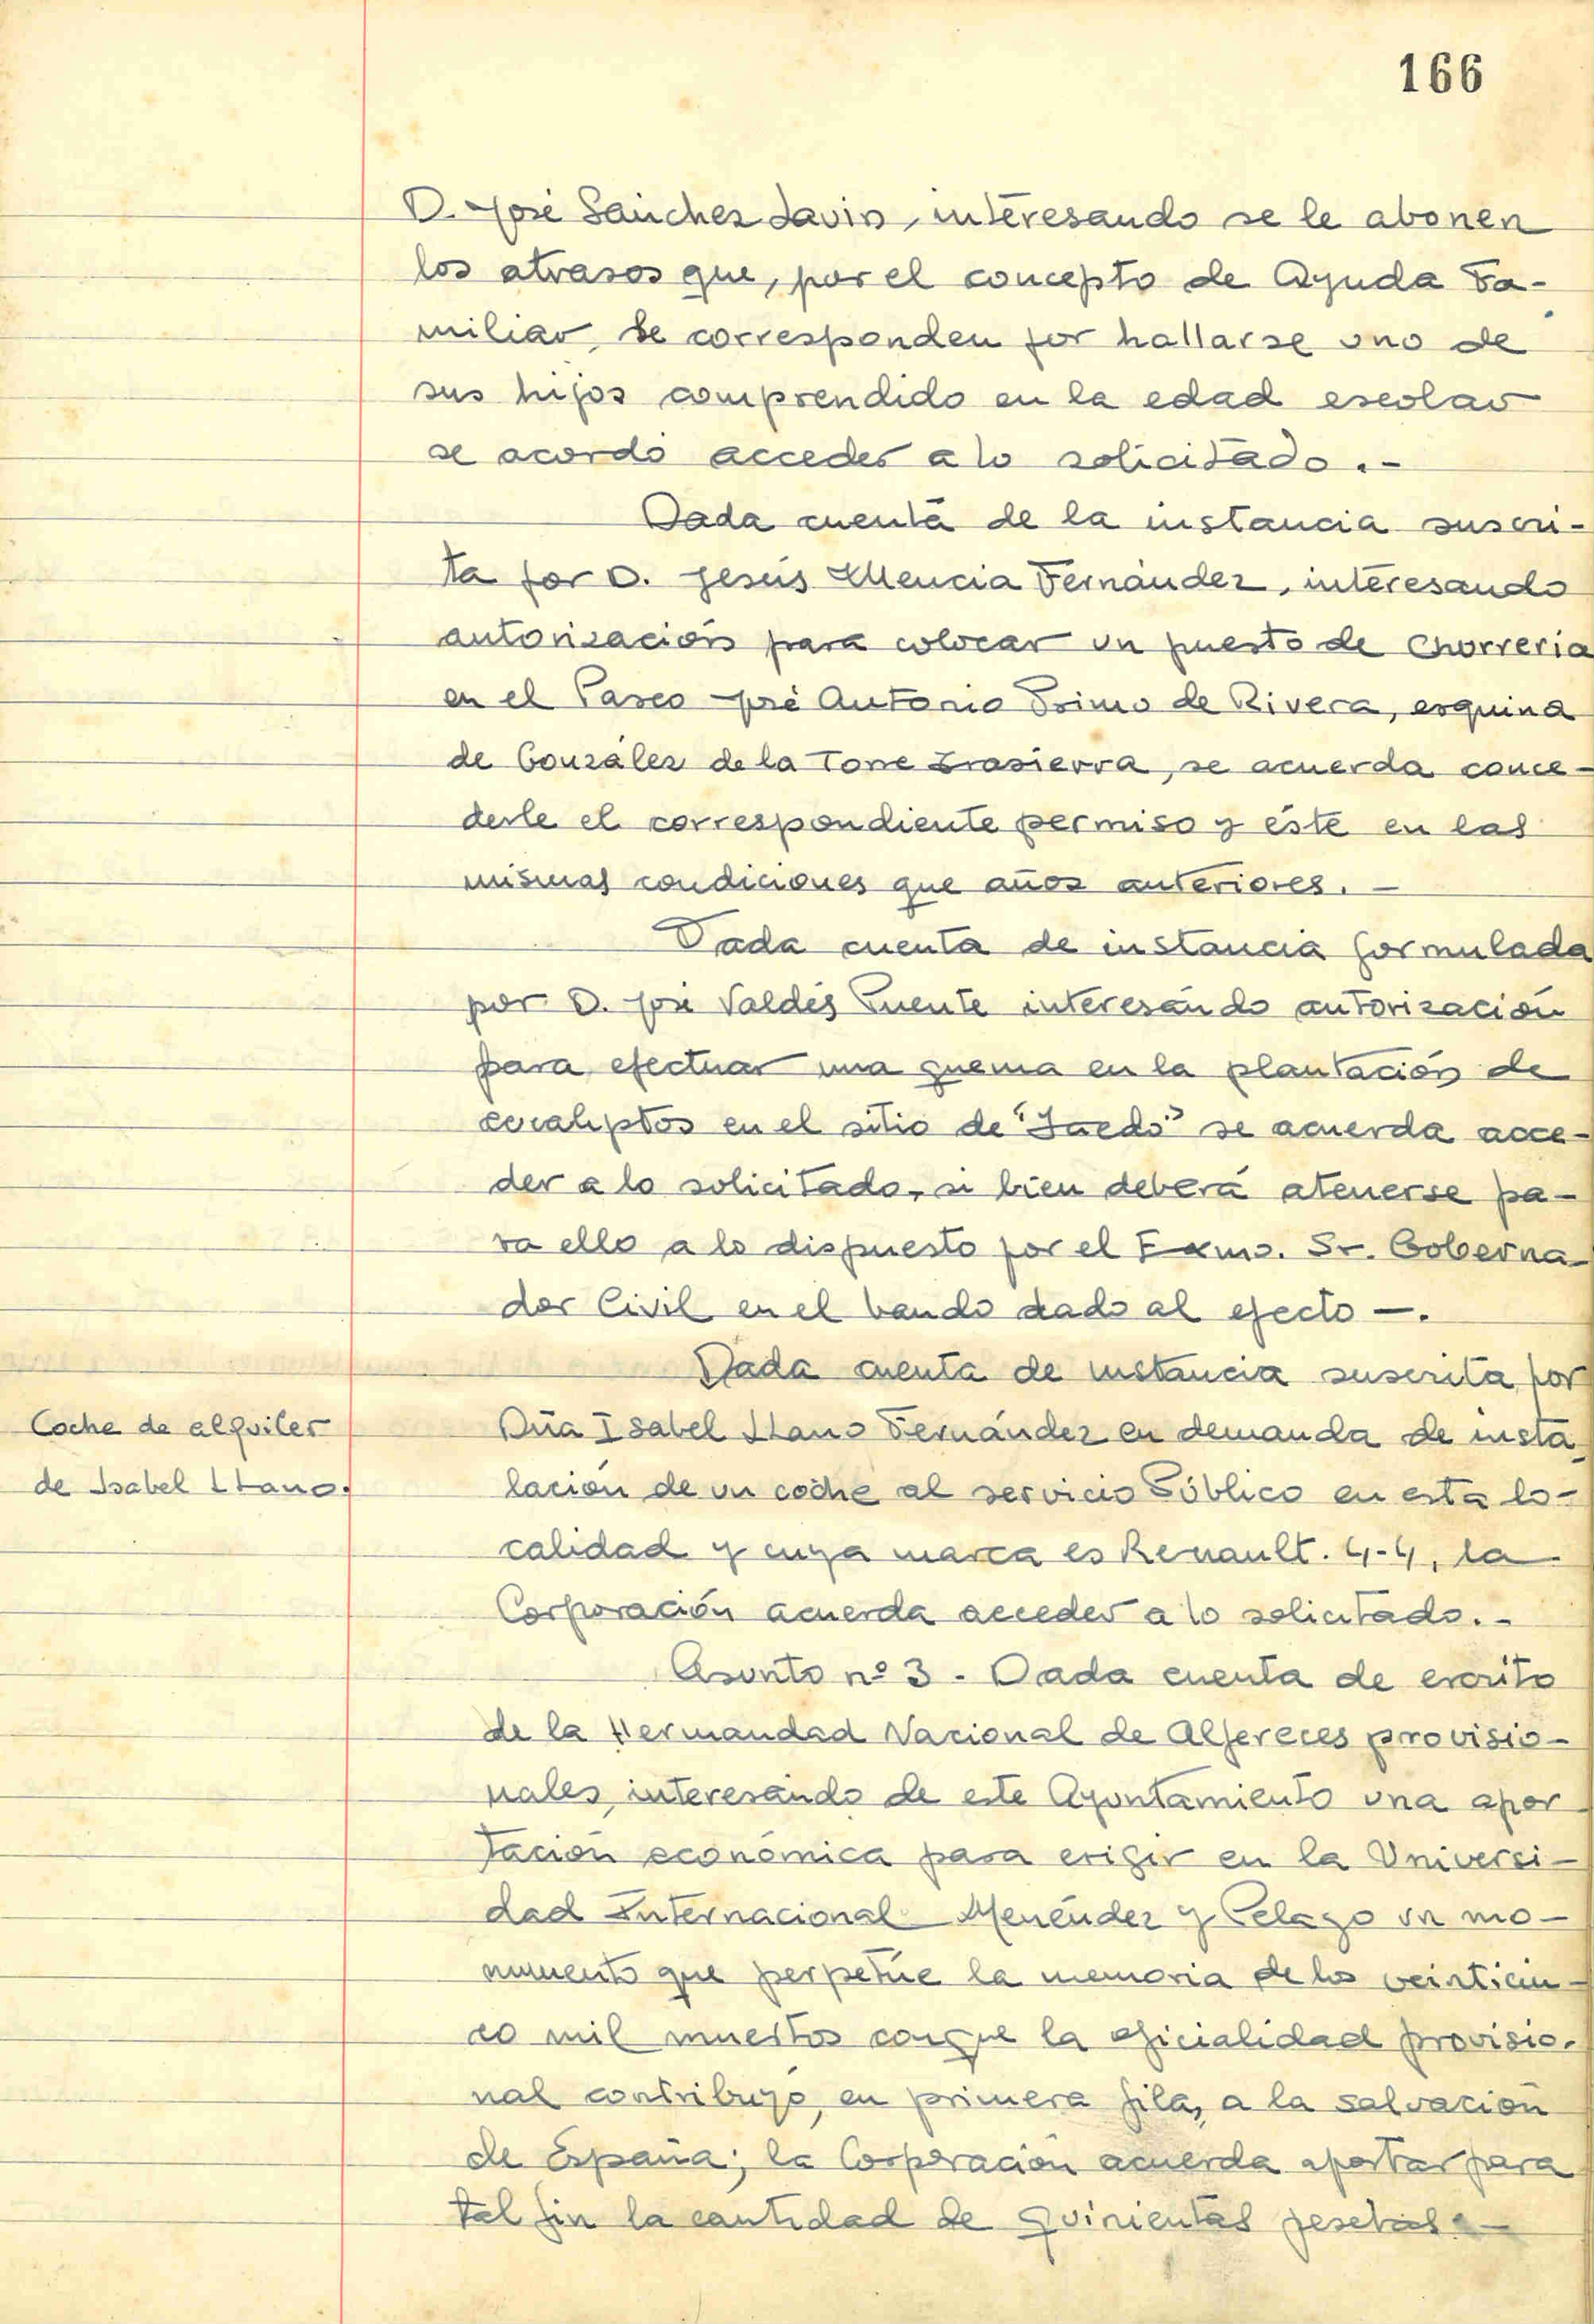 166
D. José Sánchez Lavin, interesando se le abonen
los atrasos que, por el concepto de Ayuda Fa-
miliar, le corresponden por hallarse uno de
sus hijos comprendido en la edad escolar
se acordó acceder a lo solicitado.-
Dada cuenta de la instancia suscri-
ta por D. Jesús Mencia Fernández, interesando
autorización para colocar un puesto de Churreria
en el Paseo José Antonio Primo de Rivera, esquina
de González de la Torre Trasierra, se acuerda conce-
derle el correspondiente permiso y éste en las
mismas condiciones que años anteriores.-
Dada cuenta de instancia formulada
por D. José Valdés Puente interesando autorización
para efectuar una quema en la plantación de
eucaliptos en el sitio de "Jaedo" se acuerda acce-
der a lo solicitado, si bien deberá atenerse pa-
ra ello a lo dispuesto por el Exmo. Sr. Goberna-
dor Civil en el bando dado al efecto -.
Dada cuenta de instancia suscrita por
Coche de alquiler
de Isabel Llano.
Dña Isabel Llano Fernández en demanda de insta-
lación de un coche al servicio Público en esta lo-
calidad y cuya marca es Renault. 4-4, la
Corporación acuerda acceder a lo solicitado.-
Asunto nº 3 - Dada cuenta de escrito
de la Hermandad Nacional de Alfereces provisio-
nales, interesando de este Ayuntamiento una apor
tación económica para erigir en la Universi-
dad Internacional Menéndez y Pelayo un mo-
numento que perpetúe la memoria de los veinticin-
co mil muertos conque la oficialidad provisio-
nal contribuyó, en primera fila, a la salvación
de España; la Corporación acuerda aportar para
tal fin la cantidad de quinientas pesetas.-